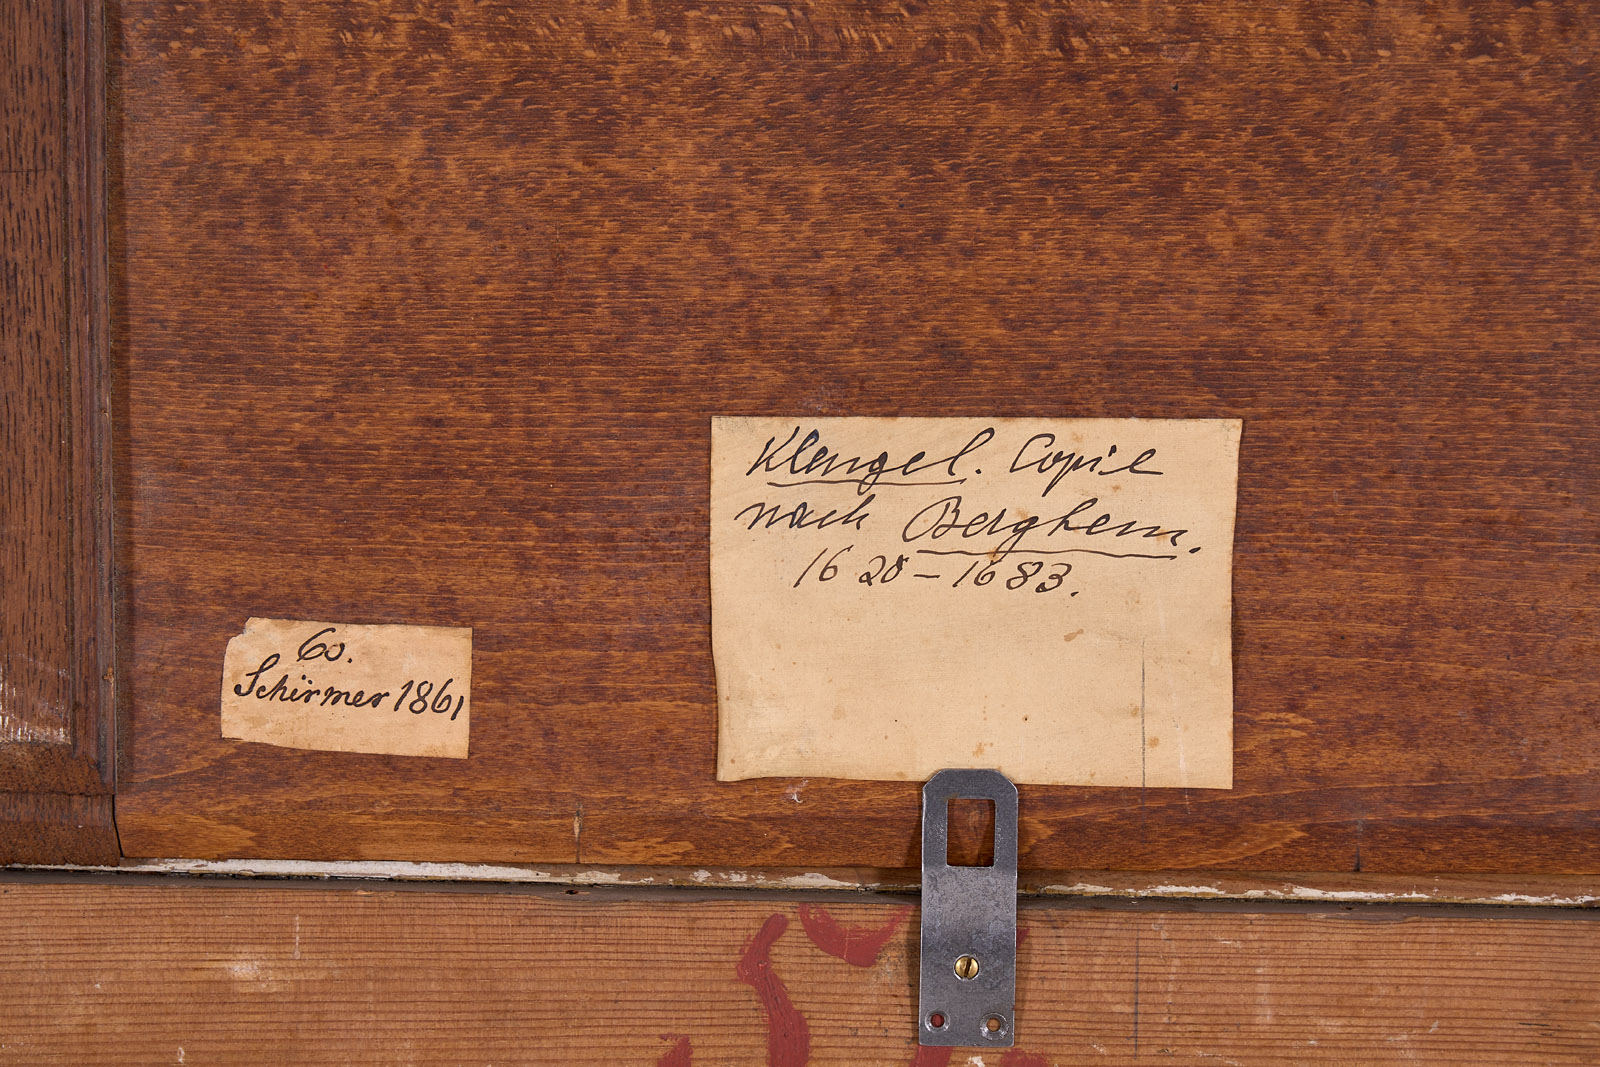 Klengel. Copie
nach Berghem.
1620-1683.
60.
Schirmer 1861